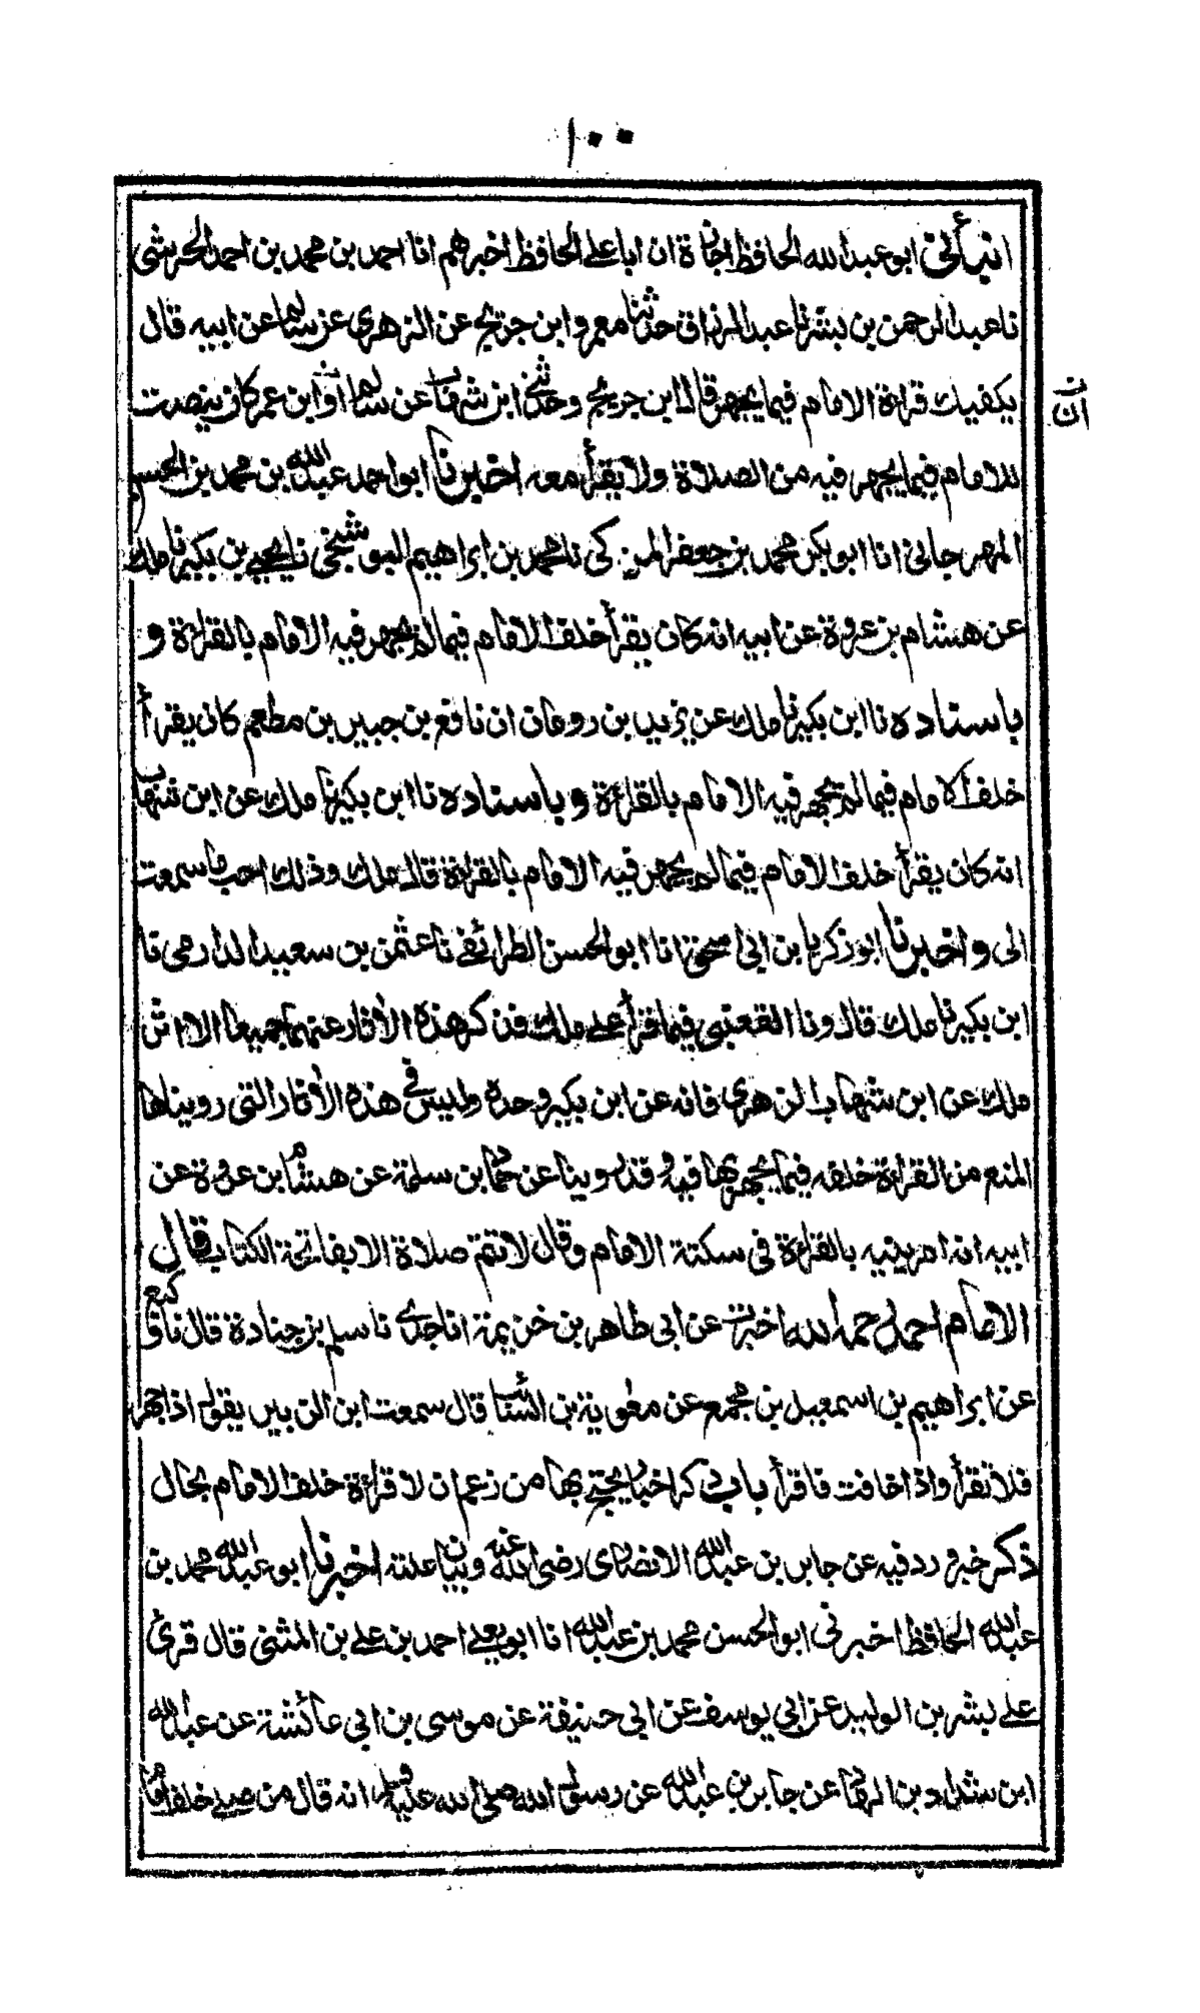 ١٠٠
انبأني ابو عبد الله الحافظ اجازة ان ابا علي الحافظ اخبرهم انا احمد بن محمد بن احمد الحرشي
نا عبد الرحمن بن بشر نا عبد الرزاق حدثنا معمر وابن جريج عن الزهري عن سالم عن ابيه قال
يكفيك قراءة الامام فيما يجهر قال ابن جريج وحدثني ابن شهاب عن سالم ان ابن عمر كان ينصت
ان
للامام فيما يجهر فيه من الصلاة ولا يقرأ معه اخبرنا ابو احمد عبد الله بن محمد بن الحسن
المهرجاني انا ابو بكر محمد بن جعفر المزكى نا محمد بن ابراهيم البوشنجي نا يحيى بن بكير نا ملك
عن هشام بن عروة عن ابيه انه كان يقرأ خلف الامام فيما لم يجهر فيه الامام بالقراءة و
باستاده نا ابن بكير نا ملك عن يزيد بن رومان ان نافع بن جبير بن مطعم كان يقرأ
خلف الامام فيما لم يجهر فيه الامام بالقراءة وباسناده نا ابن بكير نا ملك عن ابن شهاب
انه كان يقرأ خلف الامام فيما لم يجهر فيه الامام بالقراءة قال ملك وذلك احب ما سمعت
الى واخبرنا ابو زكريا بن ابي اسحق انا ابو الحسن الطرائفي نا عثمن بن سعيد الدارمي نا
ابن بكير نا ملك قال ونا القعنبي فيما قرأ على ملك فذكر هذه الأثار عنهما جميعا الا اثر
ملك عن ابن شهاب الزهري فانه عن ابن بكير وحده وليس في هذه الأثار التي رويناها
المنع من القراءة خلفه فيما يجهر بها فيه وقد روينا عن حماد بن سلمة عن هشام بن عروة عن
ابيه انه امر بنيه بالقراءة في سكتة الامام وقال لا تتم صلاة الا بفاتحة الكتاب قال
الامام احمد رحمه الله اخبرت عن ابي طاهر بن خزيمة انا جدي نا سلم بن جنادة قال نا وكيع
عن ابراهيم بن اسمعيل بن مجمع عن معوية بن السائب قال سمعت ابن الزبير يقول اذا جهر
فلا تقرأ واذا خافت فاقرأ باب ذكر اخبار يحتج بها من زعم ان لا قراءة خلف الامام بحال
ذكر خبر ورد فيه عن جابر بن عبد الله الانصاري رضي الله عنه وبيان علته اخبرنا ابو عبد الله محمد بن
عبد الله الحافظ اخبرني ابو الحسن محمد بن عبد الله انا ابو يعلى احمد بن علي بن المثنى قال قرئ
على بشر بن الوليد عن ابي يوسف عن ابي حنيفة عن موسى بن ابي عائشة عن عبد الله
ابن شداد بن الهاد عن جابر بن عبد الله عن رسول الله صلى الله عليه وسلم انه قال من صلى خلف امام